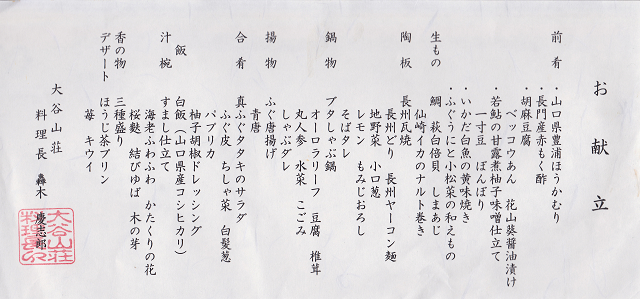 お献立
前肴
・山口県豊浦ほうかむり
・長門産赤もく酢
・胡麻豆腐
ベッコウあん 花山葵醤油漬け
・若鮎の甘露煮柚子味噌仕立て
一寸豆 ぼんぼり
・いかだ白魚の黄味焼き
・ふぐうにと小松菜の和えもの
生もの
鯛 萩白倍貝 しまあじ
仙崎イカのナルト巻き
陶板
長州瓦焼
長州どり 長州ヤーコン麺
地野菜 小口葱
レモン もみじおろし
そばタレ
鍋物
ブタしゃぶ鍋
オーロラリーフ 豆腐 椎茸
丸人参 水菜 こごみ
しゃぶダレ
揚物
ふぐ唐揚げ
青唐
合肴
真ふぐタタキのサラダ
ふぐ皮 ちしゃ菜 白髪葱
パプリカ
柚子胡椒ドレッシング
飯
白飯(山口県産コシヒカリ)
汁椀
すまし仕立て
海老ふわふわ かたくりの花
桜麩 結びゆば 木の芽
香の物
三種盛り
デザート
ほうじ茶プリン
苺 キウイ
大谷山荘
料理長 轟木 慶志郎
大谷山荘